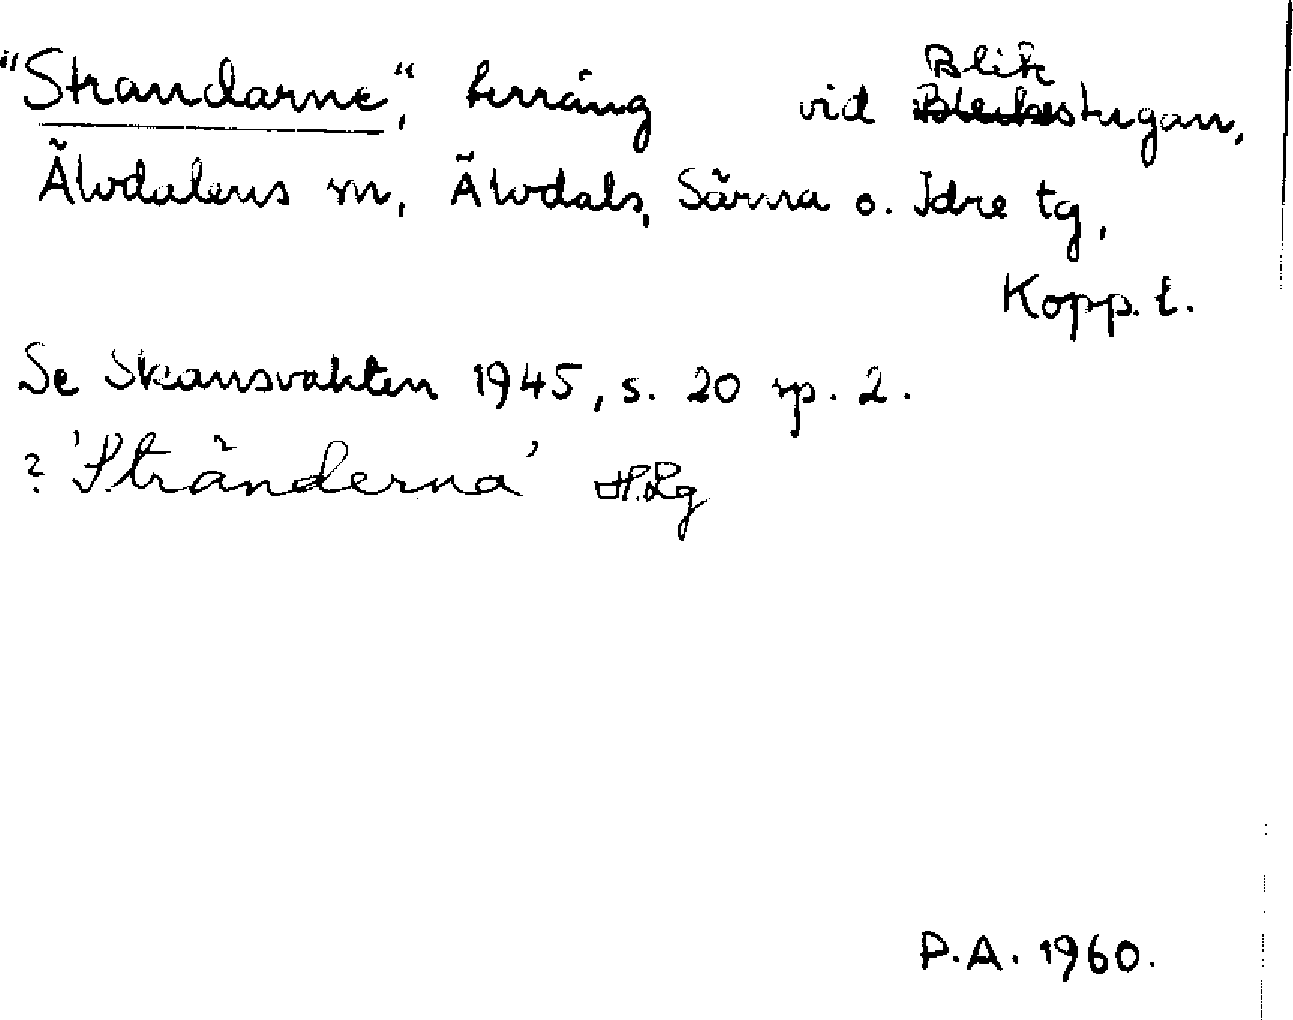 "Strandarne", terräng vid Blikstugan,
Älvdalens sn, Älvdals, Särna o. Idre tg,
Kopp. l.
Se Skansvakten 1945, s. 20 sp. 2.
? 'Stränderna' H.Lg
P.A. 1960.